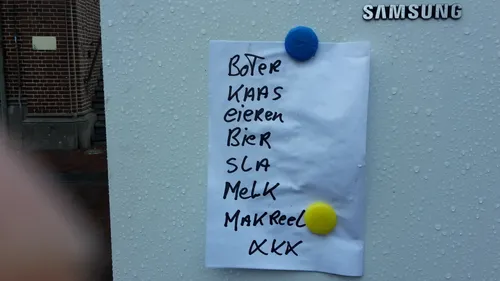 SAMSUNG
BOTER
KAAS
eieren
Bier
SLA
MeLK
MAKReeL
XXX